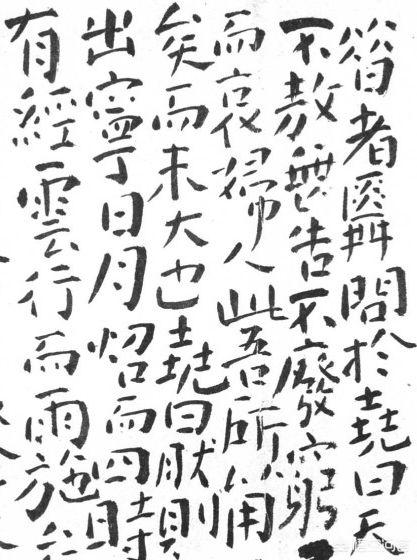 昔者舜問於堯曰天
不敖無告不廢窮
而哀婦人此吾所以用
矣而未大也堯曰然則
出寧日月炤而四時
有經雲行而雨施